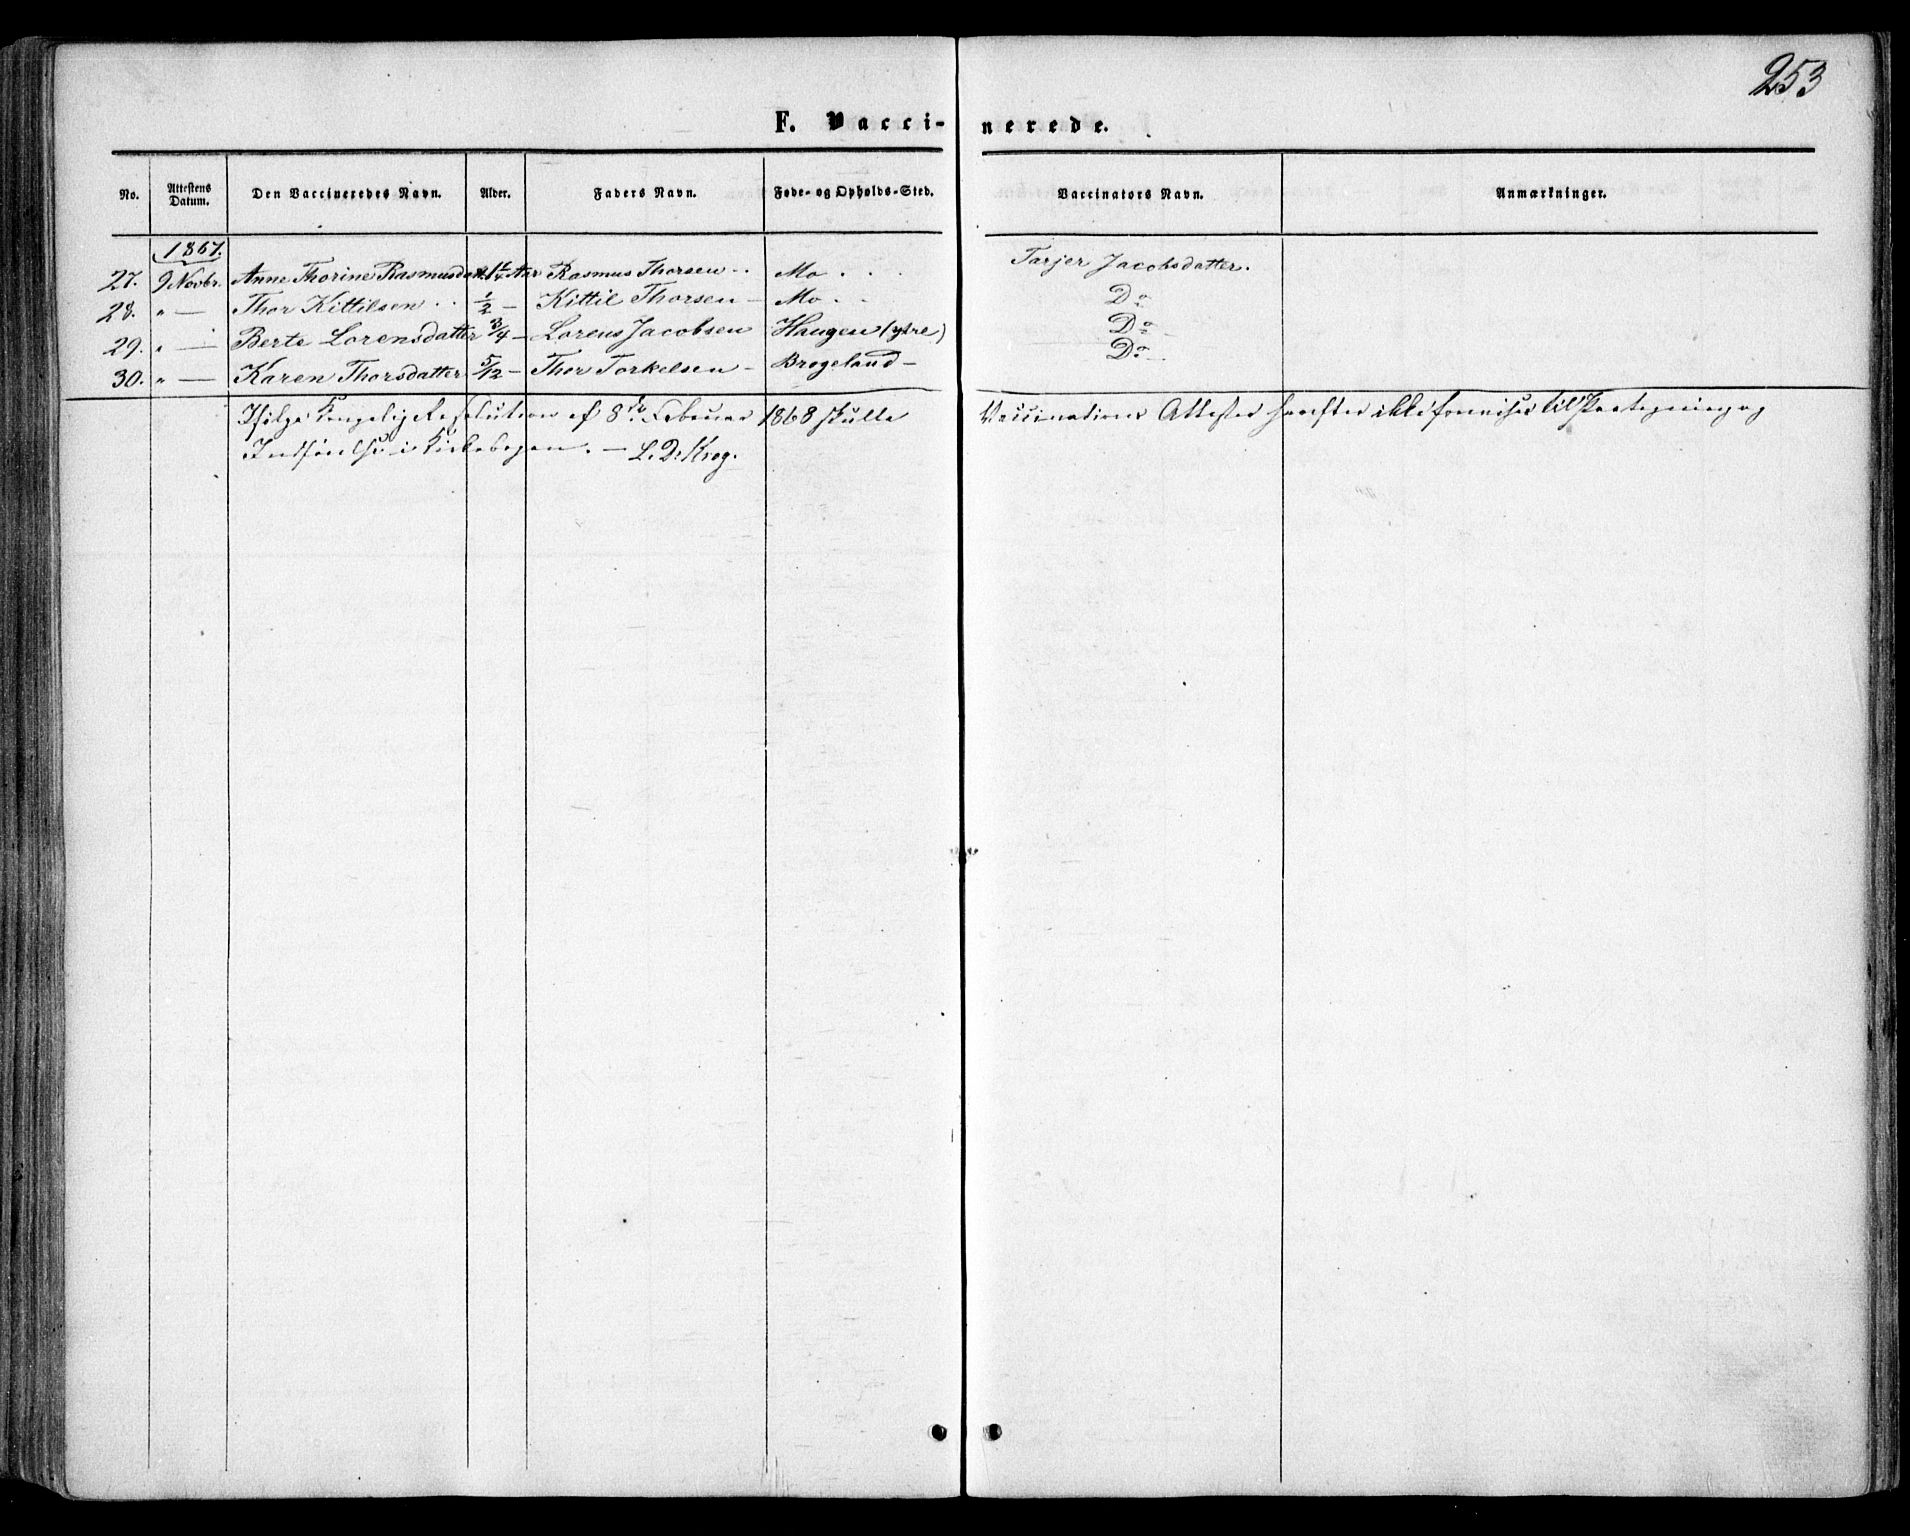 253
F. Vaccinerede.
No. Attestens Datum. Den Vaccineredes Navn. Alder. Faders Navn. Føde- og Opholds-Sted. Vaccinators Navn. Anmærkninger.
1867.
27. 9 Novbr. Anne Thorine Rasmusdatt. 1 1/4 Aar Rasmus Thorsen Mo Tarjer Jacobsdatter.
28. " — Thor Kittilsen 1/2 — Kittil Thorsen — Mo Do
29. " — Berte Lorensdatter 3/4 — Lorens Jacobsen Haugen (ytre) Do
30. " — Karen Thorsdatter 5/12 — Thor Torkelsen — Brogeland — Do
Ifølge Kongelig Resolution af 8de Februar 1868 skulle Vaccinations Attester herefter ikke fornøises til Paategning og
Indførelse i Kirkebogen. — L. D. Krog.